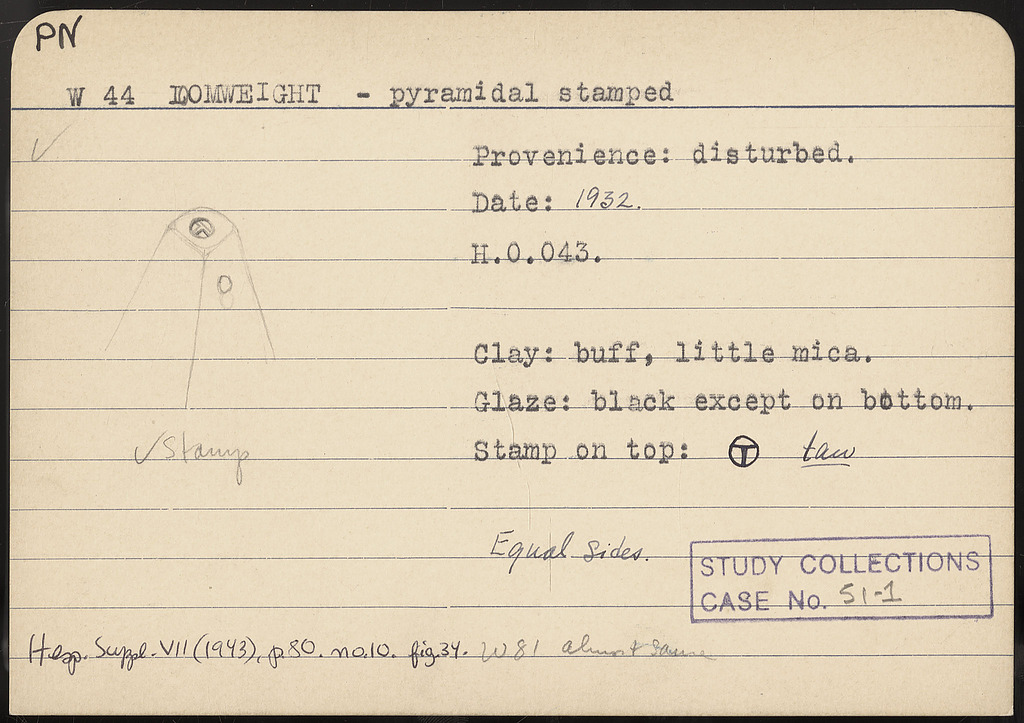 PN
W 44 LOOMWEIGHT - pyramidal stamped
Provenience: disturbed.
Date: 1932.
H.0.043.
Clay: buff, little mica.
Glaze: black except on bottom.
Stamp on top: Ⓣ taw
✓Stamp
Equal sides.
STUDY COLLECTIONS
CASE No. 51-1
Hesp. Suppl. VII (1943), p.80. no.10. fig.34. W81 almost same